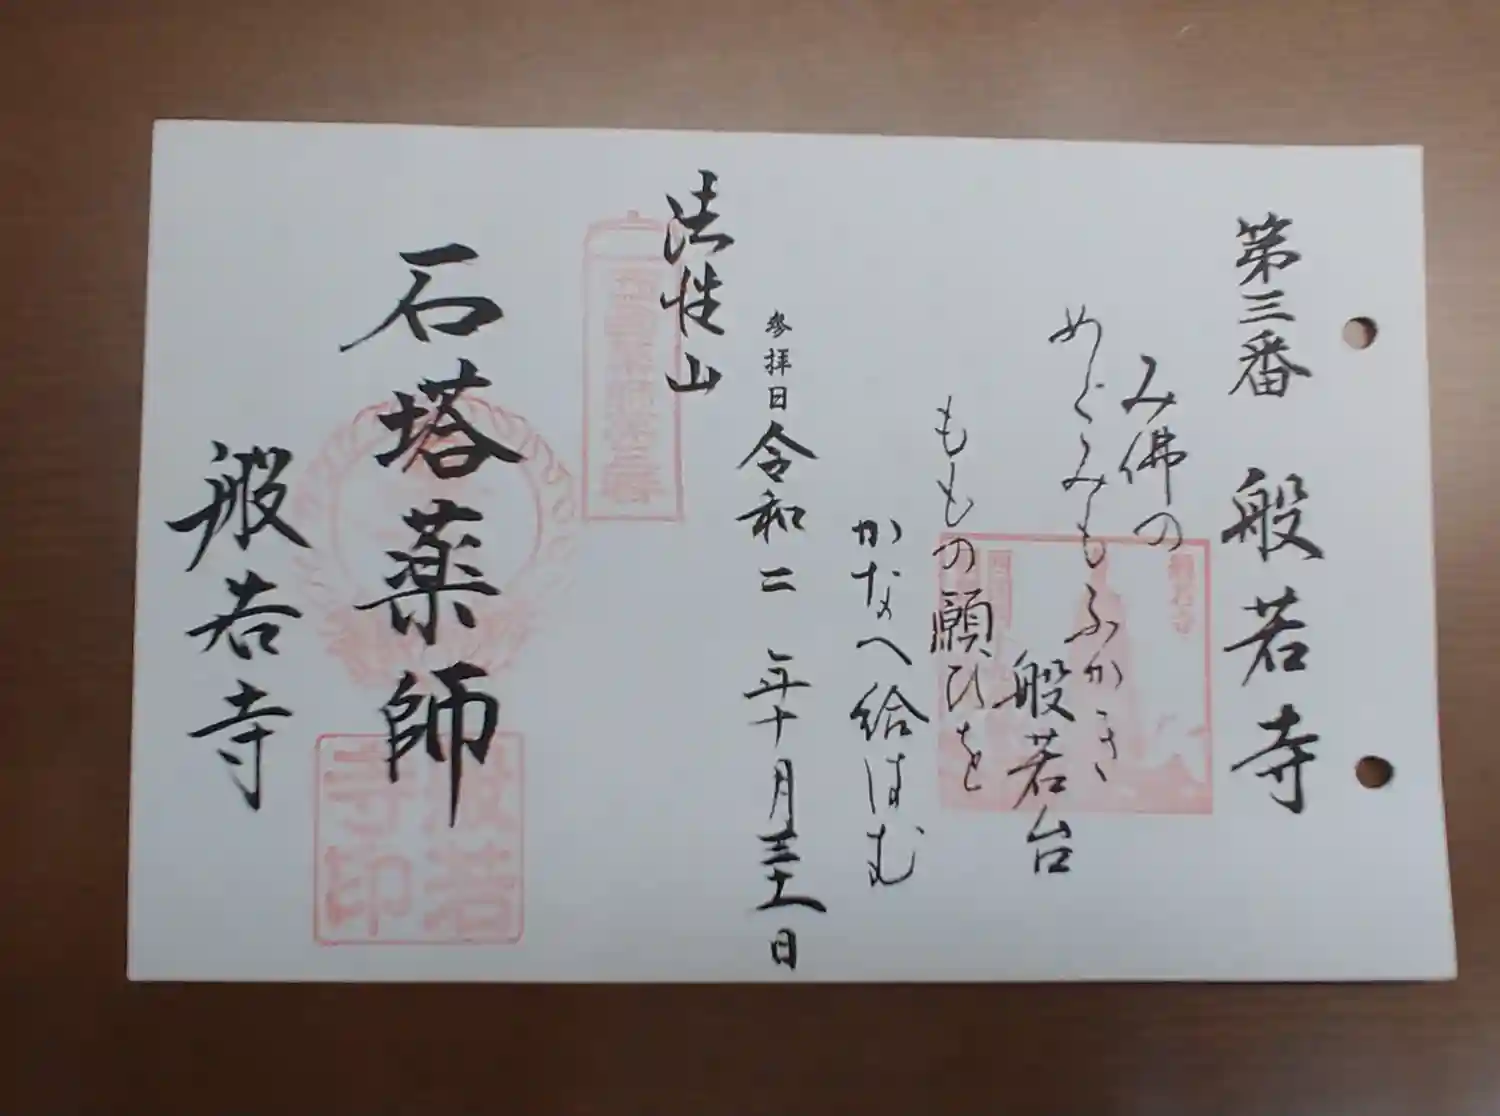 第三番 般若寺
み佛の
めぐみもふかき
般若台
ももの願ひを
かなへ給はむ
參拜日 令和二年十月三十一日
法性山
石塔薬師
般若寺
般若寺印